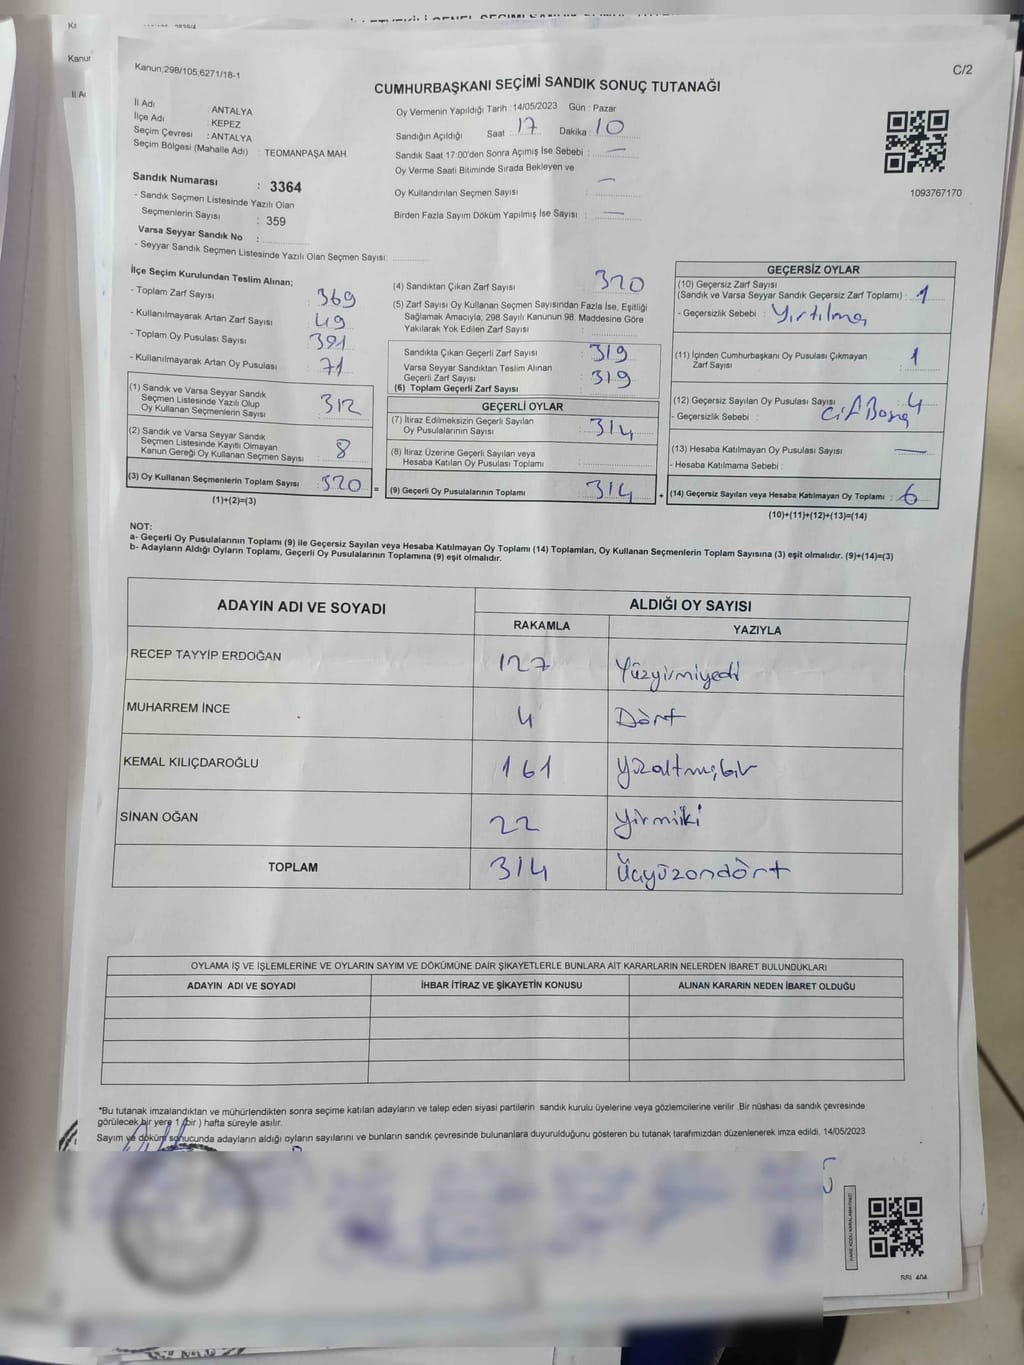 Kanun;298/105,6271/18-1
C/2
CUMHURBAŞKANI SEÇİMİ SANDIK SONUÇ TUTANAĞI
İl Adı : ANTALYA
İlçe Adı : KEPEZ
Seçim Çevresi : ANTALYA
Seçim Bölgesi (Mahalle Adı) : TEOMANPAŞA MAH.
Sandık Numarası : 3364
- Sandık Seçmen Listesinde Yazılı Olan
Seçmenlerin Sayısı : 359
Varsa Seyyar Sandık No :
- Seyyar Sandık Seçmen Listesinde Yazılı Olan Seçmen Sayısı:
Oy Vermenin Yapıldığı Tarih :14/05/2023 Gün : Pazar
Sandığın Açıldığı Saat : 17 Dakika : 10
Sandık Saat 17:00'den Sonra Açımış İse Sebebi : —
Oy Verme Saati Bitiminde Sırada Bekleyen ve
Oy Kullandırılan Seçmen Sayısı : —
Birden Fazla Sayım Döküm Yapılmış İse Sayısı : —
1093767170
İlçe Seçim Kurulundan Teslim Alınan;
- Toplam Zarf Sayısı : 369
- Kullanılmayarak Artan Zarf Sayısı : 49
- Toplam Oy Pusulası Sayısı : 391
- Kullanılmayarak Artan Oy Pusulası : 71
(1) Sandık ve Varsa Seyyar Sandık
Seçmen Listesinde Yazılı Olup
Oy Kullanan Seçmenlerin Sayısı : 312
(2) Sandık ve Varsa Seyyar Sandık
Seçmen Listesinde Kayıtlı Olmayan
Kanun Gereği Oy Kullanan Seçmen Sayısı : 8
(3) Oy Kullanan Seçmenlerin Toplam Sayısı : 320
(1)+(2)=(3)
(4) Sandıktan Çıkan Zarf Sayısı : 320
(5) Zarf Sayısı Oy Kullanan Seçmen Sayısından Fazla İse, Eşitliği
Sağlamak Amacıyla, 298 Sayılı Kanunun 98. Maddesine Göre
Yakılarak Yok Edilen Zarf Sayısı :
Sandıkta Çıkan Geçerli Zarf Sayısı : 319
Varsa Seyyar Sandıktan Teslim Alınan
Geçerli Zarf Sayısı :
(6) Toplam Geçerli Zarf Sayısı : 319
GEÇERLİ OYLAR
(7) İtiraz Edilmeksizin Geçerli Sayılan
Oy Pusulalarının Sayısı : 314
(8) İtiraz Üzerine Geçerli Sayılan veya
Hesaba Katılan Oy Pusulası Toplamı :
= (9) Geçerli Oy Pusulalarının Toplamı : 314 +
GEÇERSİZ OYLAR
(10) Geçersiz Zarf Sayısı
(Sandık ve Varsa Seyyar Sandık Geçersiz Zarf Toplamı) : 1
- Geçersizlik Sebebi : Yırtılma
(11) İçinden Cumhurbaşkanı Oy Pusulası Çıkmayan
Zarf Sayısı : 1
(12) Geçersiz Sayılan Oy Pusulası Sayısı : 4
- Geçersizlik Sebebi :
(13) Hesaba Katılmayan Oy Pusulası Sayısı : —
- Hesaba Katılmama Sebebi :
(14) Geçersiz Sayılan veya Hesaba Katılmayan Oy Toplamı : 6
(10)+(11)+(12)+(13)=(14)
NOT:
a- Geçerli Oy Pusulalarının Toplamı (9) ile Geçersiz Sayılan veya Hesaba Katılmayan Oy Toplamı (14) Toplamları, Oy Kullanan Seçmenlerin Toplam Sayısına (3) eşit olmalıdır. (9)+(14)=(3)
b- Adayların Aldığı Oyların Toplamı, Geçerli Oy Pusulalarının Toplamına (9) eşit olmalıdır.
ADAYIN ADI VE SOYADI ALDIĞI OY SAYISI
RAKAMLA YAZIYLA
RECEP TAYYİP ERDOĞAN 127 Yüzyirmiyedi
MUHARREM İNCE 4 Dört
KEMAL KILIÇDAROĞLU 161 Yüzaltmışbir
SİNAN OĞAN 22 Yirmiiki
TOPLAM 314 Üçyüzondört
OYLAMA İŞ VE İŞLEMLERİNE VE OYLARIN SAYIM VE DÖKÜMÜNE DAİR ŞİKAYETLERLE BUNLARA AİT KARARLARIN NELERDEN İBARET BULUNDUKLARI
ADAYIN ADI VE SOYADI İHBAR İTİRAZ VE ŞİKAYETİN KONUSU ALINAN KARARIN NEDEN İBARET OLDUĞU
*Bu tutanak imzalandıktan ve mühürlendikten sonra seçime katılan adayların ve talep eden siyasi partilerin sandık kurulu üyelerine veya gözlemcilerine verilir .Bir nüshası da sandık çevresinde
görülecek bir yere 1 (bir ) hafta süreyle asılır.
Sayım ve döküm sonucunda adayların aldığı oyların sayılarını ve bunların sandık çevresinde bulunanlara duyurulduğunu gösteren bu tutanak tarafımızdan düzenlenerek imza edildi. 14/05/2023